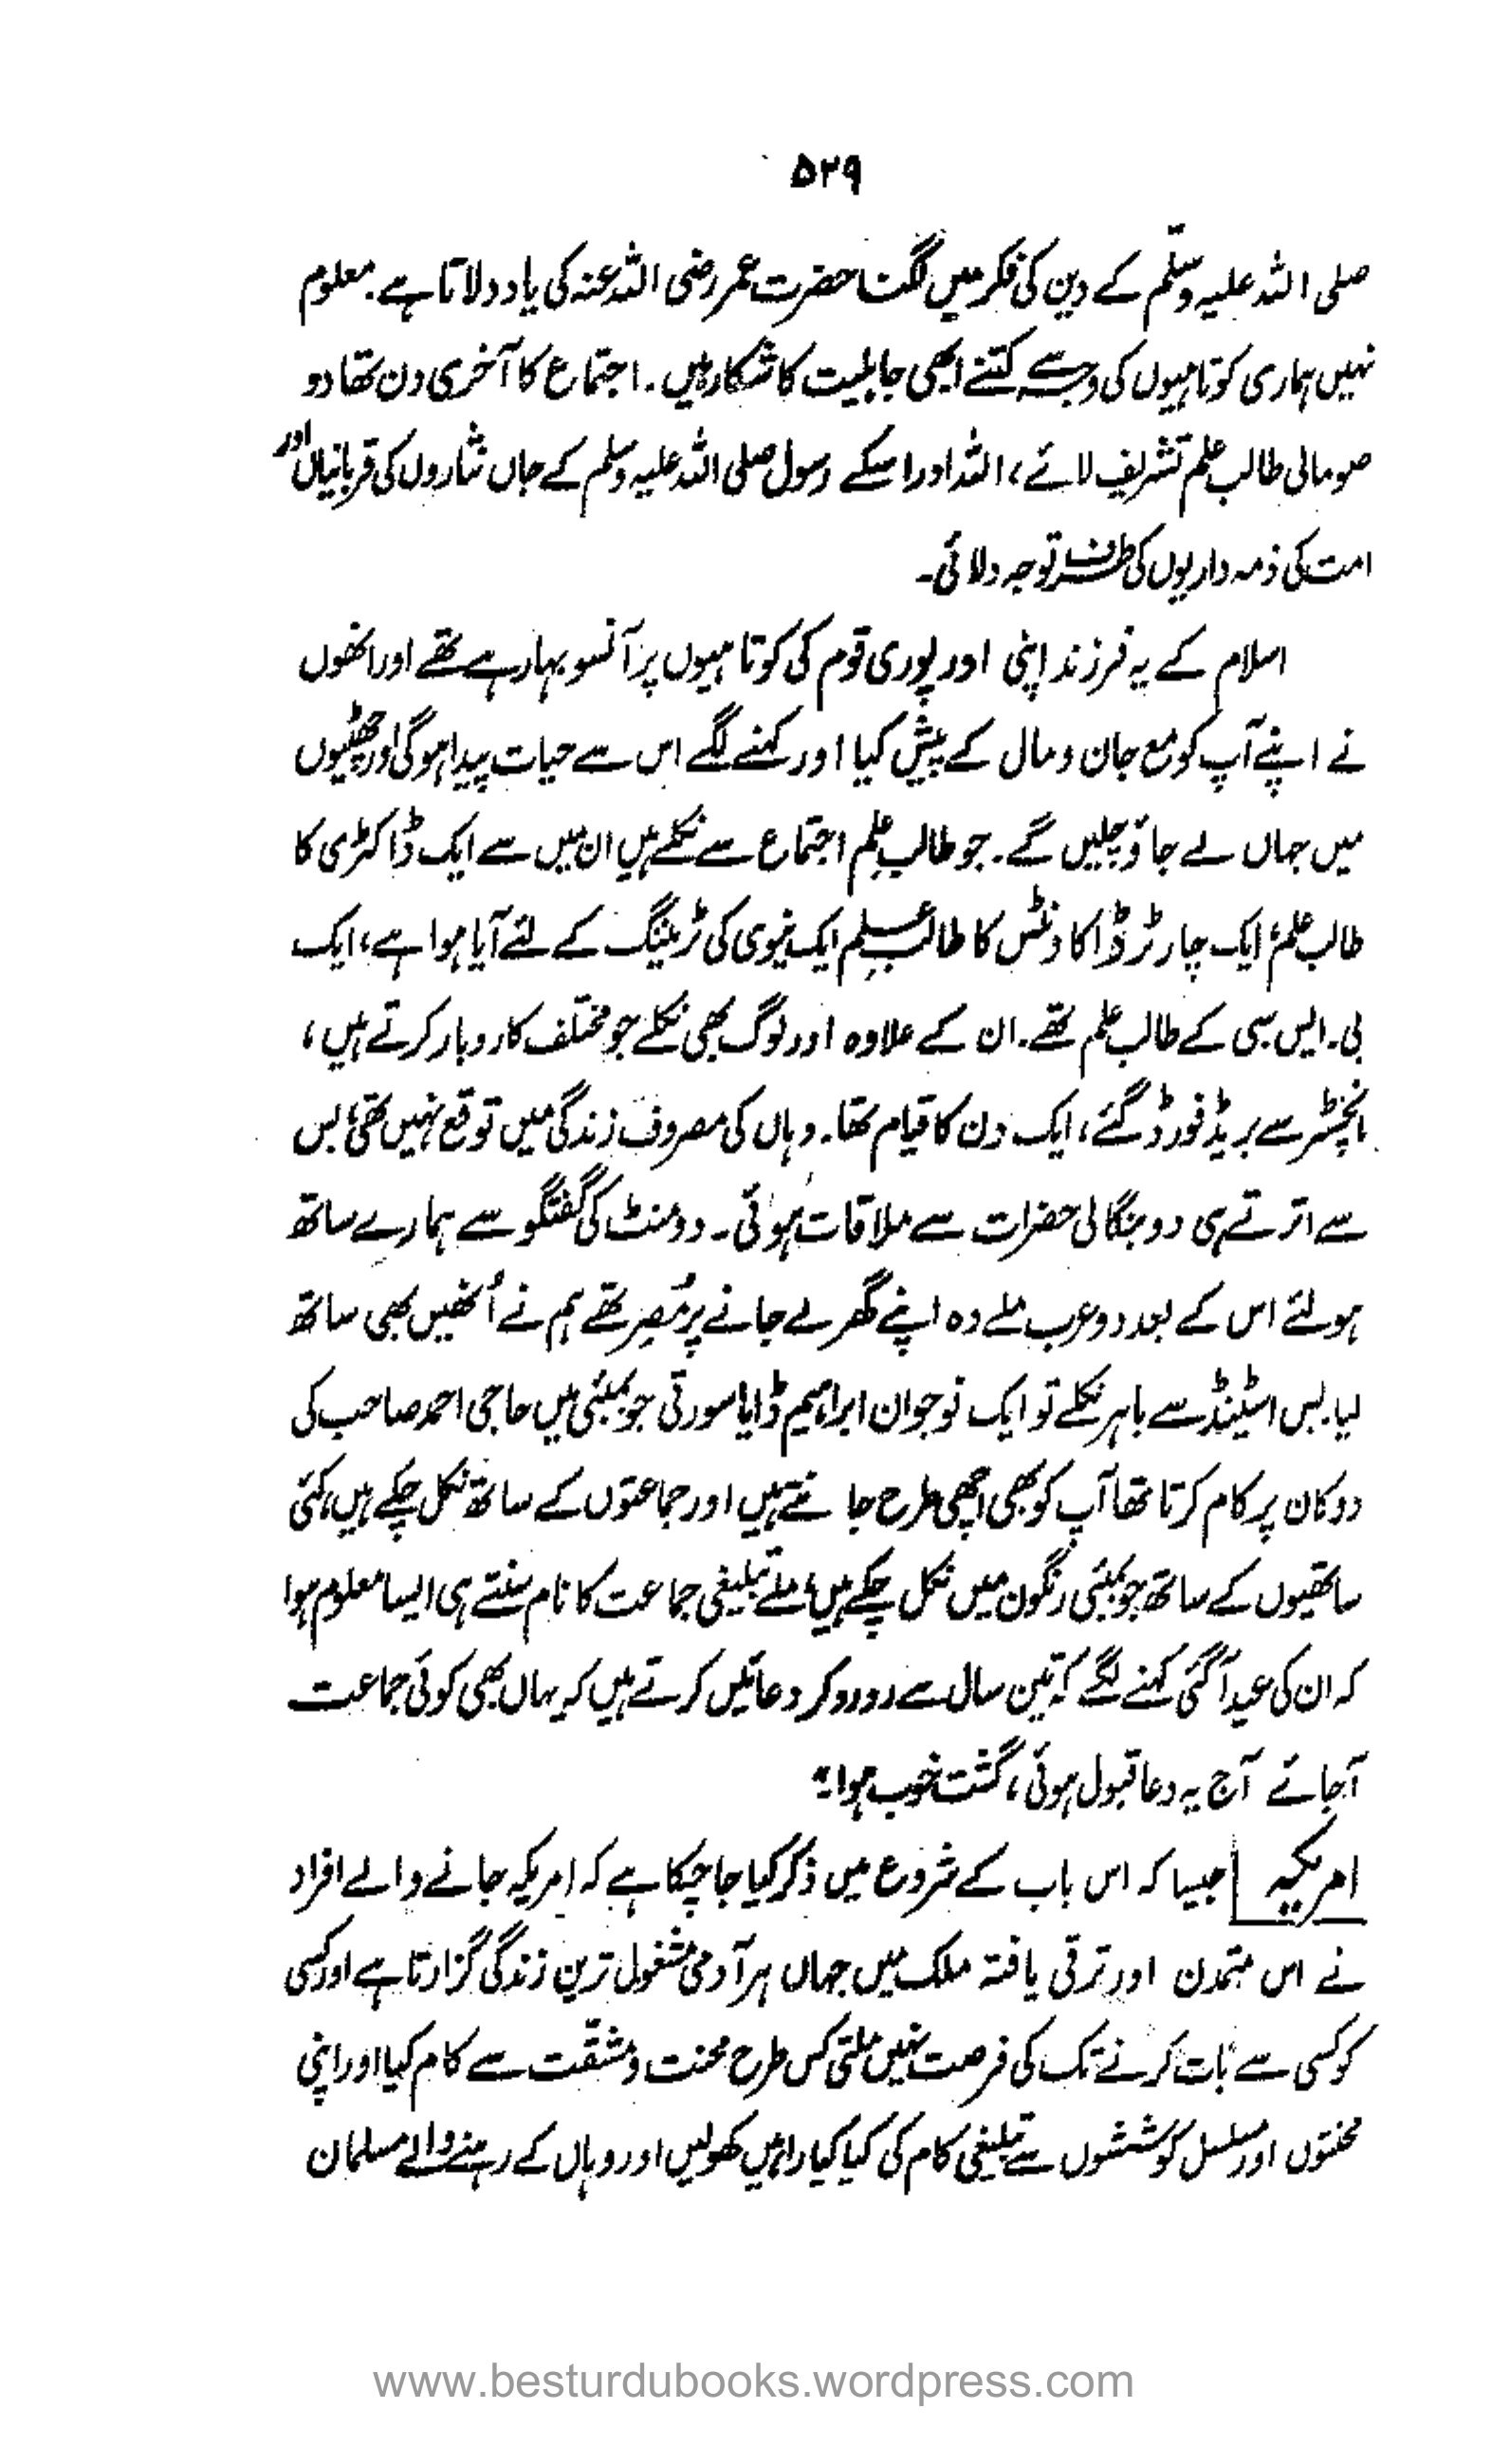 ۵۲۹
صلی اللہ علیہ وسلّم کے دین کی فکر میں لگنا حضرت عمر رضی اللہ عنہ کی یاد دلاتا ہے۔ معلوم
نہیں ہماری کوتاہیوں کی وجہ سے کتنے ابھی جاہلیت کا شکار ہیں۔ اجتماع کا آخری دن تھا دو
صومالی طالب علم تشریف لائے، اللہ اور اسکے رسول صلی اللہ علیہ وسلم کے جاں نثاروں کی قربانیاں اور
امت کی ذمہ داریوں کی طرف توجہ دلائی۔
اسلام کے یہ فرزند اپنی اور پوری قوم کی کوتاہیوں پر آنسو بہا رہے تھے اور انھوں
نے اپنے آپ کو مع جان و مال کے پیش کیا اور کہنے لگے اس سے حیات پیدا ہوگی اور چھٹیوں
میں جہاں لے جاؤ چلیں گے۔ جو طالب علم اجتماع سے نکلے ہیں ان میں سے ایک ڈاکٹری کا
طالب علم، ایک چارٹرڈ اکاونٹس کا طالب علم ایک نیوی کی ٹریننگ کے لئے آیا ہوا ہے، ایک
بی۔ ایس سی کے طالب علم تھے۔ ان کے علاوہ اور لوگ بھی نکلے جو مختلف کاروبار کرتے ہیں،
مانچسٹر سے بریڈفورڈ گئے، ایک دن کا قیام تھا۔ وہاں کی مصروف زندگی میں توقع نہیں تھی، بس
سے اترتے ہی دو بنگالی حضرات سے ملاقات ہوئی۔ دو منٹ کی گفتگو سے ہمارے ساتھ
ہولئے اس کے بعد دو عرب ملے وہ اپنے گھر لے جانے پر مُصِر تھے ہم نے اُنھیں بھی ساتھ
لیا۔ بس اسٹینڈ سے باہر نکلے تو ایک نوجوان ابراہیم ڈایا سورتی جو بمبئی میں حاجی احمد صاحب کی
دوکان پر کام کرتا تھا آپ کو بھی اچھی طرح جانتے ہیں اور جماعتوں کے ساتھ نکل چکے ہیں، کئی
ساتھیوں کے ساتھ جو بمبئی رنگون میں نکل چکے ہیں، ملے تبلیغی جماعت کا نام سنتے ہی ایسا معلوم ہوا
کہ ان کی عید آگئی کہنے لگے کہ تین سال سے رو رو کر دعائیں کرتے ہیں کہ یہاں بھی کوئی جماعت
آجائے آج یہ دعا قبول ہوئی، گشت خوب ہوا۔"
امریکہ جیسا کہ اس باب کے شروع میں ذکر کیا جا چکا ہے کہ امریکہ جانے والے افراد
نے اس متمدن اور ترقی یافتہ ملک میں جہاں ہر آدمی مشغول ترین زندگی گزارتا ہے اور کسی
کو کسی سے بات کرنے تک کی فرصت نہیں ملتی کس طرح محنت و مشقّت سے کام کیا اور اپنی
محنتوں اور مسلسل کوششوں سے تبلیغی کام کی کیا کیا راہیں کھولیں اور وہاں کے رہنے والے مسلمان
www.besturdubooks.wordpress.com